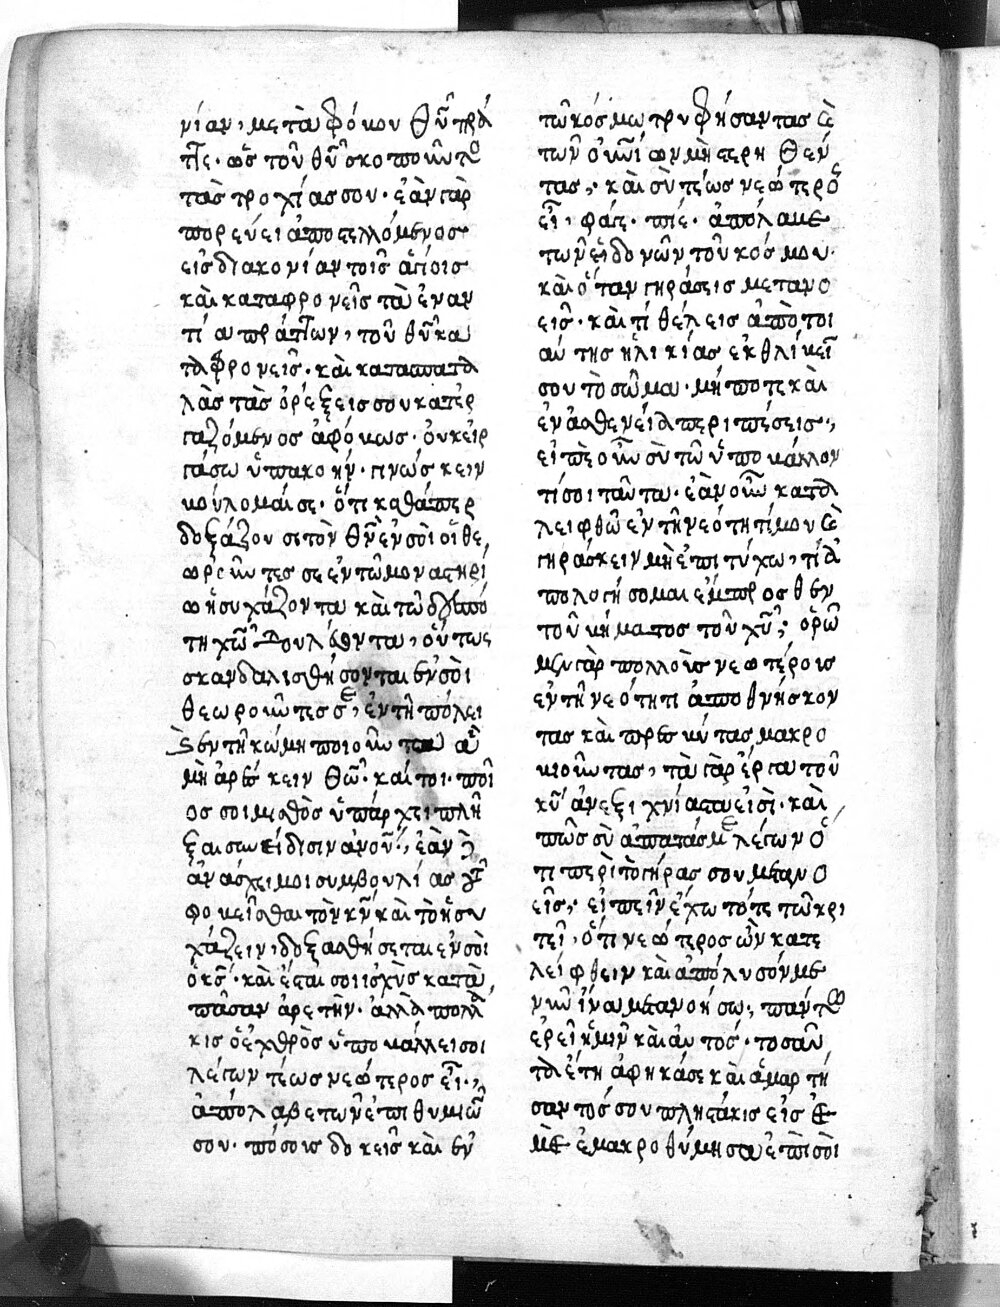 νίαν, μετὰ φόβου Θῦ πρά
τε· ὡς τοῦ θῦ σκοποῦντο
τὰς τροχίας σου· ἐὰν γὰρ
πορεύει ἀποστελλόμενος
εἰς διακονίαν τοῖς ἁγίοις
καὶ καταφρονεῖς τὰ ἐναν
τία πράττων, τοῦ θῦ κα
ταφρονεῖς· καὶ καταπατα
λὰς τὰς ὀρέξεις σου κατερ
γαζόμενος ἀφόβως· οὐκ εἰρ
γάσω ὑπακοήν· γινώσκειν
βούλομαί σε· ὅτι καθάπερ
δοξάζουσι τὸν Θν ἐν σοὶ οἱ θε
ωροῦντες σε ἐν τῷ μοναστηρί
ω ἡσυχάζοντα καὶ τῷ
τῃ χῶ δουλεύοντα, οὕτως
σκανδαλισθήσονται ἐν σοὶ
θεωροῦντες σε, ἐν τῇ πόλει
ἐν τῇ κώμῃ ποιοῦντα ἃ
μὴ ἀρέσκειν Θῶ· καίτοι· ποῖ
ος σοι μισθὸς ὑπάρχει πλῆ
ξαι συνείδισιν ἀνοῦ·, ἐὰν
ἀνάσχει μοι συμβουλίας
φοβεῖσθαι τὸν κν καὶ τὸ ἡσυ
χάζειν, δοξασθήσεται ἐν σοὶ
ὁ κς· καὶ ἔσται σοι ἰσχὺς κατὰ
πᾶσαν ἀρετήν· ἀλλὰ πολλά
κις ὁ ἐχθρὸς ὑποβάλλει σοι
λέγων τέως νεώτερος εἶ·,
ἀπόλαβε τῶν ἐπιθυμιῶν
σου· πόσοις δοκεῖς καὶ ἐν
τῶ κόσμω τρυφήσαντας
τῶν οἰκείων μὴ στερηθέν
τας,· καὶ σὺ τέως νεώτερος
εἶ, φάγε· πίε· ἀπόλαυε
τῶν ἡδονῶν τοῦ κόσμου·
καὶ ὅταν γηράσεις μετανο
εῖς· καὶ τί θέλεις ἀπὸ τοι
αύτης ἡλικίας ἐκθλίβειν
σου τὸ σῶμα· μήποτε καὶ
ἐν ἀσθενείᾳ περιπέσεις·,
εἰπὲ οὖν σὺ τῷ ὑποβάλλον
τί σοι ταῦτα· ἐὰν οὖν κατα
λειφθῶ ἐν τῇ νεότητί μου
γηράσκειν μὴ ἐπιτύχω, τί ἀ
πολογήσομαι ἔμπροσθεν
τοῦ βήματος τοῦ χῦ; ὁρῶ
μεν γὰρ πολλοὺς νεωτέροις
ἐν τῇ νεότητι ἀποθνήσκον
τας καὶ πρεσβύτας μακρο
βιοῦντας, τὰ γὰρ ἔργα τοῦ
κῦ ἀνεξιχνίαστα εἰσὶ· καὶ
πῶς σὺ ἀπατᾶς με λέγων ὅ
τι περὶ τὸ γήρας σου μετανο
εῖς; εἰπεῖν ἔχω τότε τῶ κρι
τεῖ, ὅτι νεώτερος ὢν κατε
λείφθειν καὶ ἀπόλυσόν με
νῦν ἵνα μετανοήσω; πάντως
ἐρεῖ ἡμῖν καὶ αὐτός· τοσαῦ
τα ἔτη ἀφῆκά σε καὶ ἁμαρτή
σαντός σου πλειστάκις εἰς ἐ
μὲ ἐμακροθύμησα ἐπὶ σοὶ